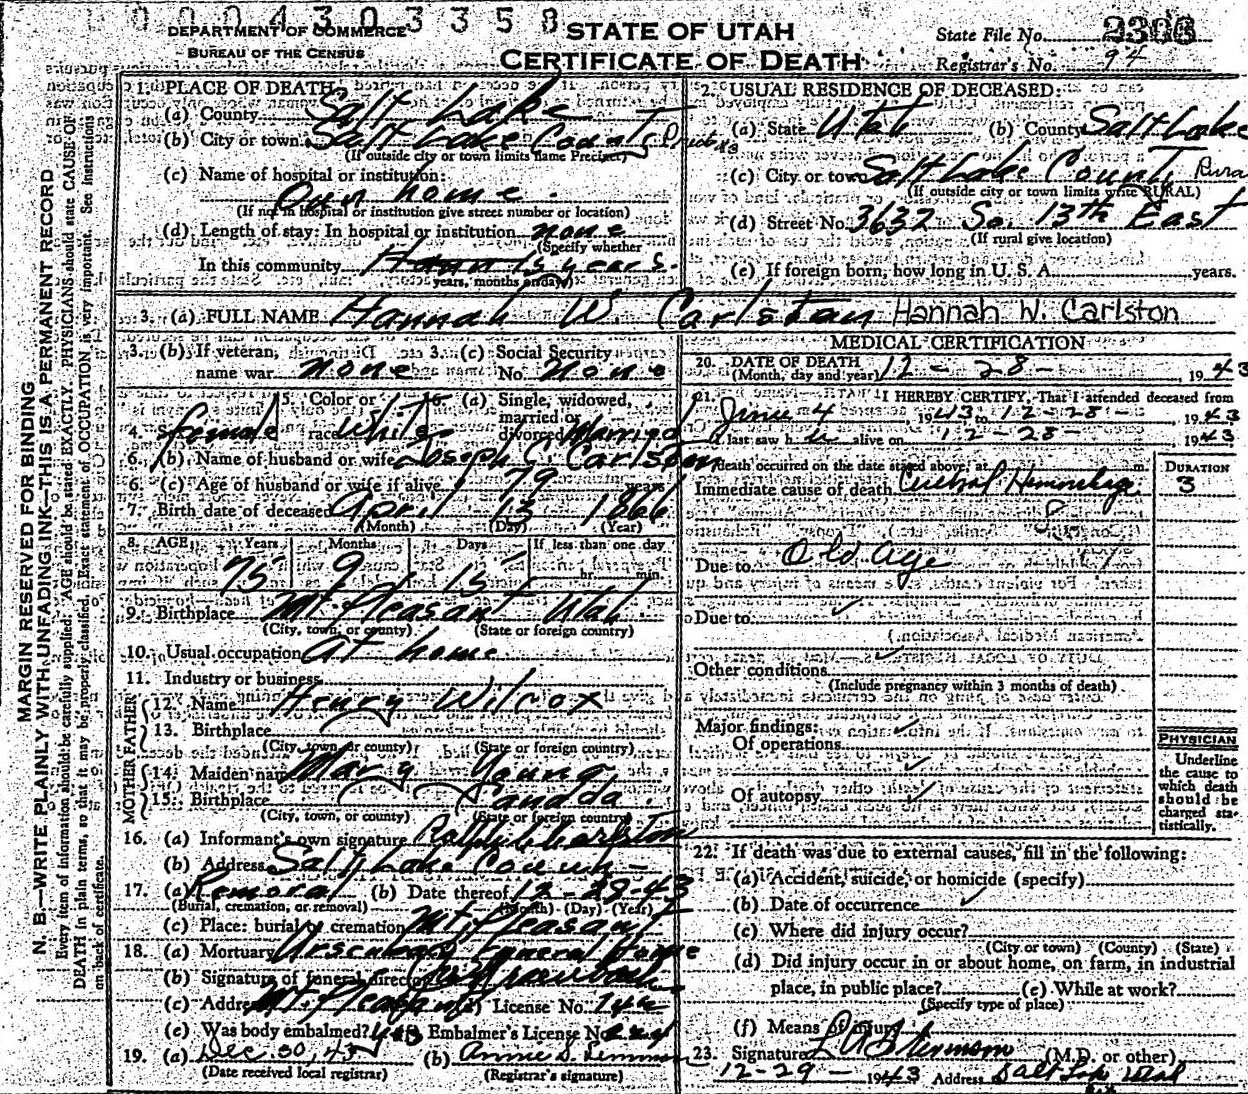 0004303358
DEPARTMENT OF COMMERCE
BUREAU OF THE CENSUS
STATE OF UTAH
CERTIFICATE OF DEATH
State File No. 2306
Registrar's No. 94
MARGIN RESERVED FOR BINDING
N. B.—WRITE PLAINLY WITH UNFADING INK—THIS IS A PERMANENT RECORD
Every item of information should be carefully supplied; AGE should be stated EXACTLY. PHYSICIANS should state CAUSE OF
DEATH in plain terms, so that it may be properly classified. Exact statement of OCCUPATION is very important. See Instructions
on back of certificate.
1. PLACE OF DEATH:
(a) County Salt Lake
(b) City or town Salt Lake County
(If outside city or town limits name Precinct)
(c) Name of hospital or institution:
Own home.
(If not in hospital or institution give street number or location)
(d) Length of stay: In hospital or institution none
(Specify whether
In this community 15 years.
years, months or days)
2. USUAL RESIDENCE OF DECEASED:
(a) State Utah (b) County Salt Lake
(c) City or town Salt Lake County
(If outside city or town limits write RURAL)
(d) Street No. 3632 So. 13th East
(If rural give location)
(e) If foreign born, how long in U. S. A. years.
3. (a) FULL NAME Hannah W Carlston Hannah W. Carlston
3. (b) If veteran, name war none
3. (c) Social Security No. None
4. Sex female 5. Color or race White 6. (a) Single, widowed, married or divorced Married
6. (b) Name of husband or wife Joseph C. Carlston
6. (c) Age of husband or wife if alive 79 years
7. Birth date of deceased April 13 1866
(Month) (Day) (Year)
8. AGE: Years Months Days If less than one day
75 9 15 hr. min.
9. Birthplace Mt. Pleasant Utah
(City, town, or county) (State or foreign country)
10. Usual occupation At home
11. Industry or business
FATHER
12. Name Henry Wilcox
13. Birthplace
(City, town, or county) (State or foreign country)
MOTHER
14. Maiden name Mary Young
15. Birthplace Canada.
(City, town, or county) (State or foreign country)
16. (a) Informant's own signature Ralph Carlston
(b) Address Salt Lake County
17. (a) Removal (b) Date thereof 12-29-43
(Burial, cremation, or removal) (Month) (Day) (Year)
(c) Place: burial or cremation Mt. Pleasant
18. (a) Mortuary Ursenbach Funeral Home
(b) Signature of funeral director
(c) Address Mt. Pleasant License No.
(e) Was body embalmed? yes Embalmer's License No.
19. (a) Dec 30, 43 (b) Annie S. Lemmon
(Date received local registrar) (Registrar's signature)
MEDICAL CERTIFICATION
20. DATE OF DEATH
(Month, day and year) 12-28-, 1943
21. I HEREBY CERTIFY, That I attended deceased from
June 4 1943, to 12-28- 1943
I last saw h er alive on 12-28- 1943
death occurred on the date stated above, at m.
DURATION
3
Immediate cause of death Cerebral Hemorrhage
Due to Old age
Due to
Other conditions
(Include pregnancy within 3 months of death)
Major findings:
Of operations
Of autopsy
PHYSICIAN
Underline
the cause to
which death
should be
charged sta-
tistically.
22. If death was due to external causes, fill in the following:
(a) Accident, suicide, or homicide (specify)
(b) Date of occurrence
(c) Where did injury occur?
(City or town) (County) (State)
(d) Did injury occur in or about home, on farm, in industrial
place, in public place? (e) While at work?
(Specify type of place)
(f) Means of injury
23. Signature (M.D. or other)
12-29- 1943 Address